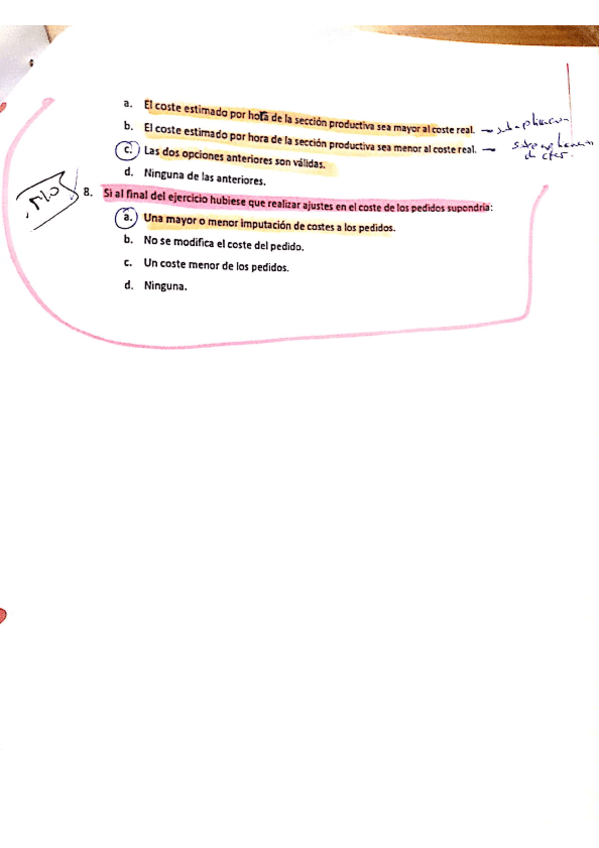 a. El coste estimado por hora de la sección productiva sea mayor al coste real.
b. El coste estimado por hora de la sección productiva sea menor al coste real.
c. Las dos opciones anteriores son válidas.
d. Ninguna de las anteriores.
8. Si al final del ejercicio hubiese que realizar ajustes en el coste de los pedidos supondría:
a. Una mayor o menor imputación de costes a los pedidos.
b. No se modifica el coste del pedido.
c. Un coste menor de los pedidos.
d. Ninguna.